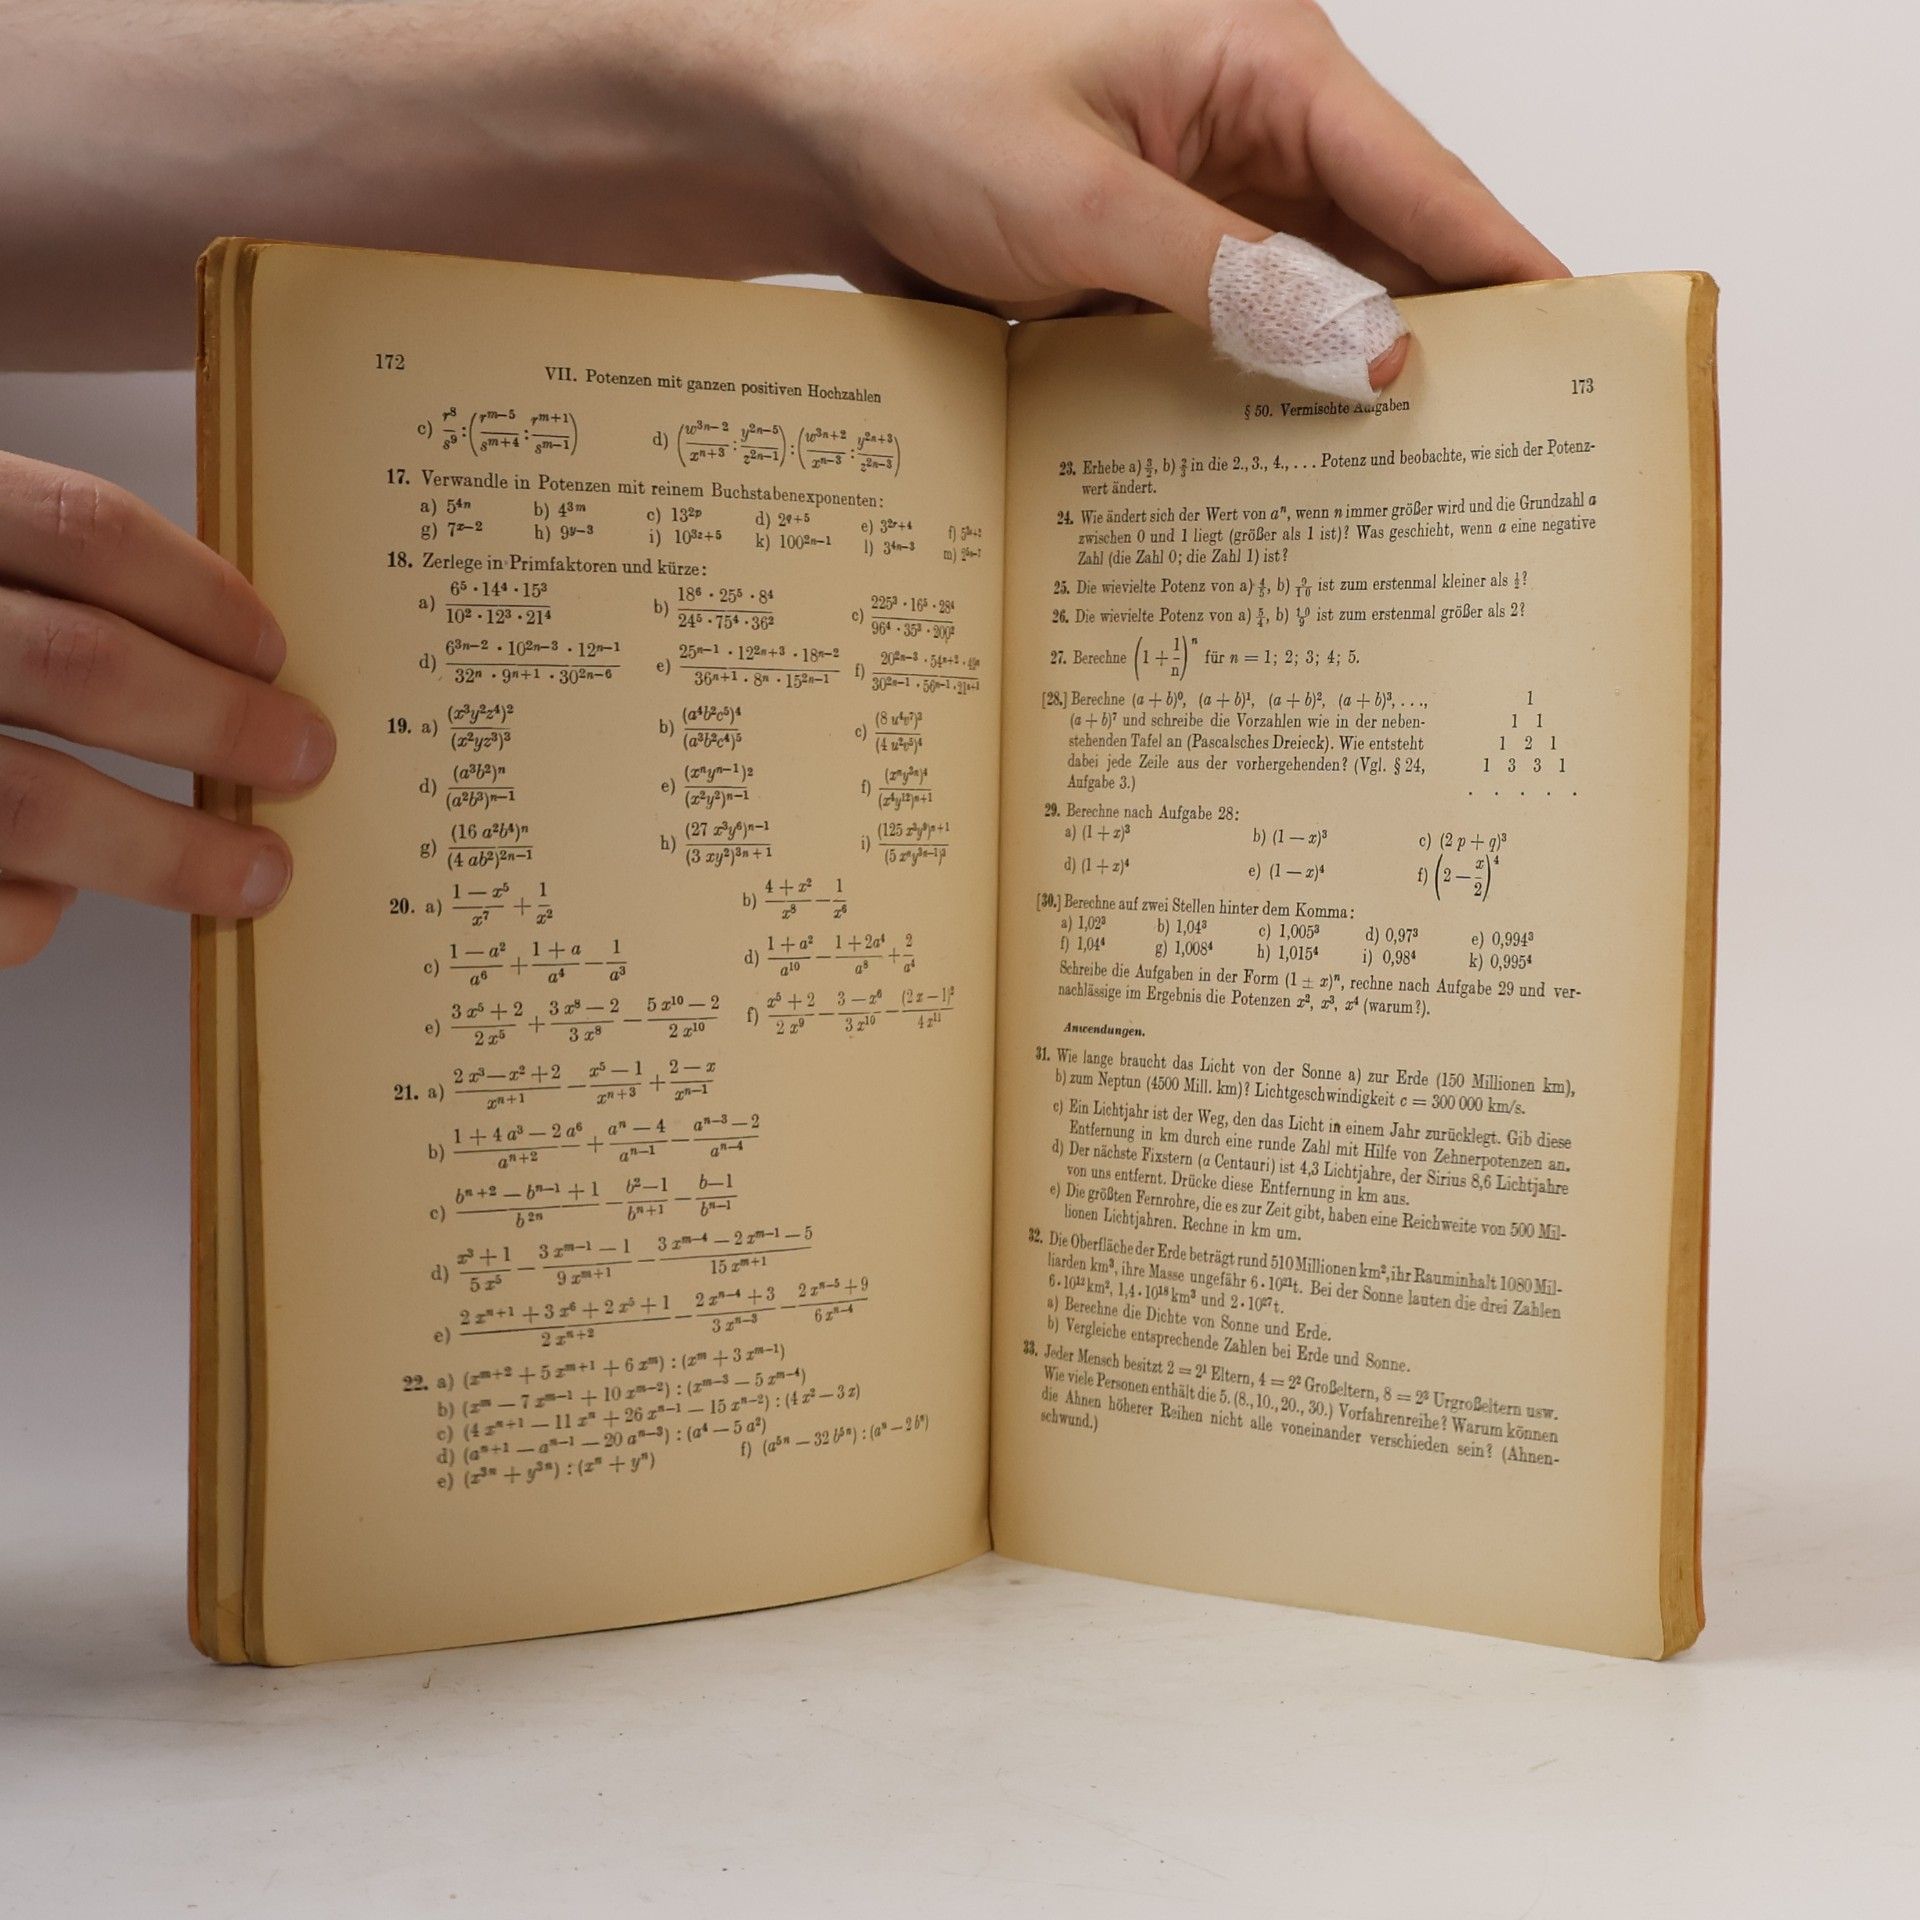 172
VII. Potenzen mit ganzen positiven Hochzahlen
c) r⁸/s⁹ : (r^(m−5)/s^(m+4) : r^(m+1)/s^(m−1)) d) (w^(3n−2)/x^(n+3) : y^(2n−5)/z^(2n−1)) : (w^(3n+2)/x^(n−3) : y^(2n+3)/z^(2n−3))
17. Verwandle in Potenzen mit reinem Buchstabenexponenten:
a) 5^(4n) b) 4^(3m) c) 13^(2p) d) 2^(q+5) e) 3^(2r+4) f)
g) 7^(x−2) h) 9^(y−3) i) 10^(3z+5) k) 100^(2n−1) l) 3^(4n−3) m)
18. Zerlege in Primfaktoren und kürze:
a) (6⁵ · 14⁴ · 15³)/(10² · 12³ · 21⁴) b) (18⁶ · 25⁵ · 8⁴)/(24⁵ · 75⁴ · 36²) c) (225³ · 16⁵ · 28⁴)/(96⁴ · 35³ · 200²)
d) (6^(3n−2) · 10^(2n−3) · 12^(n−1))/(32^n · 9^(n+1) · 30^(2n−6)) e) (25^(n−1) · 12^(2n+3) · 18^(n−2))/(36^(n+1) · 8^n · 15^(2n−1)) f) (20^(2n−3) · 54^(n+2) ·)/(30^(2n−1) · 56^(n−1) · 21^(n+1))
19. a) (x³y²z⁴)²/(x²yz³)³ b) (a⁴b²c⁵)⁴/(a³b²c⁴)⁵ c) (8 u⁴v⁷)³/(4 u²v⁵)⁴
d) (a³b²)^n/(a²b³)^(n−1) e) (x^n y^(n−1))²/(x²y²)^(n−1) f) (x^n y^(2n))⁴/(x⁴y¹²)^(n+1)
g) (16 a²b⁴)^n/(4 ab²)^(2n−1) h) (27 x³y⁶)^(n−1)/(3 xy²)^(3n+1) i) (125 x³y⁹)^(n+1)/(5 x^n y^(3n−1))³
20. a) (1 − x⁵)/x⁷ + 1/x² b) (4 + x²)/x⁸ − 1/x⁶
c) (1 − a²)/a⁶ + (1 + a)/a⁴ − 1/a³ d) (1 + a²)/a¹⁰ − (1 + 2a⁴)/a⁸ + 2/a⁴
e) (3 x⁵ + 2)/(2 x⁵) + (3 x⁸ − 2)/(3 x⁸) − (5 x¹⁰ − 2)/(2 x¹⁰) f) (x⁵ + 2)/(2 x⁹) − (3 − x⁶)/(3 x¹⁰) − (2 x − 1)²/(4 x¹¹)
21. a) (2 x³ − x² + 2)/x^(n+1) − (x⁵ − 1)/x^(n+3) + (2 − x)/x^(n−1)
b) (1 + 4 a³ − 2 a⁶)/a^(n+2) + (a^n − 4)/a^(n−1) − (a^(n−3) − 2)/a^(n−4)
c) (b^(n+2) − b^(n−1) + 1)/b^(2n) − (b² − 1)/b^(n+1) − (b − 1)/b^(n−1)
d) (x³ + 1)/(5 x⁵) − (3 x^(m−1) − 1)/(9 x^(m+1)) − (3 x^(m−4) − 2 x^(m−1) − 5)/(15 x^(m+1))
e) (2 x^(n+1) + 3 x⁶ + 2 x⁵ + 1)/(2 x^(n+2)) − (2 x^(n−4) + 3)/(3 x^(n−3)) − (2 x^(n−5) + 9)/(6 x^(n−4))
22. a) (x^(m+2) + 5 x^(m+1) + 6 x^m) : (x^m + 3 x^(m−1))
b) (x^m − 7 x^(m−1) + 10 x^(m−2)) : (x^(m−3) − 5 x^(m−4))
c) (4 x^(n+1) − 11 x^n + 26 x^(n−1) − 15 x^(n−2)) : (4 x² − 3 x)
d) (a^(n+1) − a^(n−1) − 20 a^(n−3)) : (a⁴ − 5 a²)
e) (x^(3n) + y^(3n)) : (x^n + y^n) f) (a^(5n) − 32 b^(5n)) : (a^n − 2 b^n)
§ 50. Vermischte Aufgaben
173
23. Erhebe a) 3/2, b) 2/3 in die 2., 3., 4., . . . Potenz und beobachte, wie sich der Potenz-
wert ändert.
24. Wie ändert sich der Wert von a^n, wenn n immer größer wird und die Grundzahl a
zwischen 0 und 1 liegt (größer als 1 ist)? Was geschieht, wenn a eine negative
Zahl (die Zahl 0; die Zahl 1) ist?
25. Die wievielte Potenz von a) 4/5, b) 9/10 ist zum erstenmal kleiner als 1/2?
26. Die wievielte Potenz von a) 5/4, b) 10/9 ist zum erstenmal größer als 2?
27. Berechne (1 + 1/n)^n für n = 1; 2; 3; 4; 5.
[28.] Berechne (a + b)⁰, (a + b)¹, (a + b)², (a + b)³, . . .,
(a + b)⁷ und schreibe die Vorzahlen wie in der neben-
stehenden Tafel an (Pascalsches Dreieck). Wie entsteht
dabei jede Zeile aus der vorhergehenden? (Vgl. § 24,
Aufgabe 3.)
1
1 1
1 2 1
1 3 3 1
. . . . .
29. Berechne nach Aufgabe 28:
a) (1 + x)³ b) (1 − x)³ c) (2 p + q)³
d) (1 + x)⁴ e) (1 − x)⁴ f) (2 − x/2)⁴
[30.] Berechne auf zwei Stellen hinter dem Komma:
a) 1,02³ b) 1,04³ c) 1,005³ d) 0,97³ e) 0,994³
f) 1,04⁴ g) 1,008⁴ h) 1,015⁴ i) 0,98⁴ k) 0,995⁴
Schreibe die Aufgaben in der Form (1 ± x)^n, rechne nach Aufgabe 29 und ver-
nachlässige im Ergebnis die Potenzen x², x³, x⁴ (warum?).
Anwendungen.
31. Wie lange braucht das Licht von der Sonne a) zur Erde (150 Millionen km),
b) zum Neptun (4500 Mill. km)? Lichtgeschwindigkeit c = 300 000 km/s.
c) Ein Lichtjahr ist der Weg, den das Licht in einem Jahr zurücklegt. Gib diese
Entfernung in km durch eine runde Zahl mit Hilfe von Zehnerpotenzen an.
d) Der nächste Fixstern (α Centauri) ist 4,3 Lichtjahre, der Sirius 8,6 Lichtjahre
von uns entfernt. Drücke diese Entfernung in km aus.
e) Die größten Fernrohre, die es zur Zeit gibt, haben eine Reichweite von 500 Mil-
lionen Lichtjahren. Rechne in km um.
32. Die Oberfläche der Erde beträgt rund 510 Millionen km², ihr Rauminhalt 1080 Mil-
liarden km³, ihre Masse ungefähr 6 · 10²¹ t. Bei der Sonne lauten die drei Zahlen
6 · 10¹² km², 1,4 · 10¹⁸ km³ und 2 · 10²⁷ t.
a) Berechne die Dichte von Sonne und Erde.
b) Vergleiche entsprechende Zahlen bei Erde und Sonne.
33. Jeder Mensch besitzt 2 = 2¹ Eltern, 4 = 2² Großeltern, 8 = 2³ Urgroßeltern usw.
Wie viele Personen enthält die 5. (8., 10., 20., 30.) Vorfahrenreihe? Warum können
die Ahnen höherer Reihen nicht alle voneinander verschieden sein? (Ahnen-
schwund.)